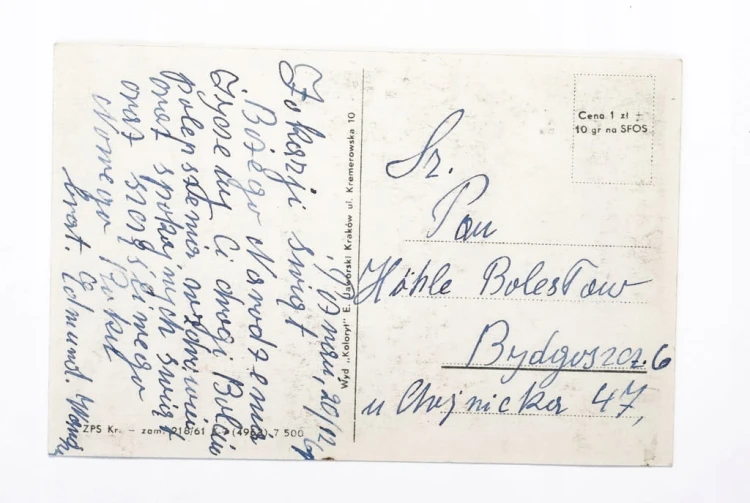 20/12
Z okazji świąt
Bożego Narodzenia
Życzę Ci drogi Bolciu
polepszenia zdrowia
oraz spokojnych świąt
oraz szczęśliwego
Nowego Roku
brat. Edmund.
Wyd „Koloryt" E. Jaworski Kraków ul. Kremerowska 10
ZPS Kr. – zam. 218/61 7 500
Cena 1 zł +
10 gr na SFOS
Sz.
Pan
Höhle Bolesław
Bydgoszcz. 6
u Chojnicka 47,